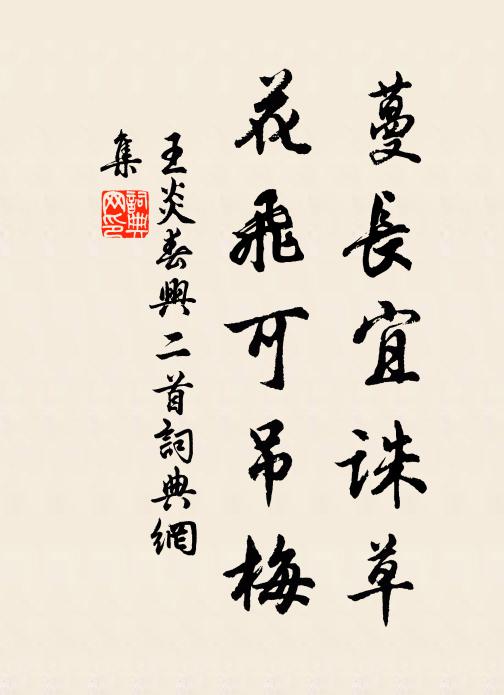 蔓長宜誅草
花飛可吊梅
王炎春興二首詞典網
集
詞典网印